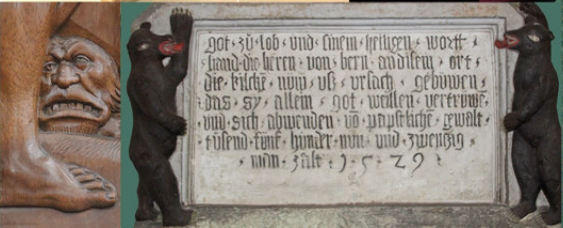 got · zů · lob · und · sinem · heiligen · wortt ·
hand · die · heren · von · bern · an disem · ort ·
die · kilche · nüw · uß · ursach · gebuwen ·
das · sy · allein · got · wellen · vertruwē
und · sich · abwenden · vō · päpstliche · gwalt ·
tusend · fünf · hunder · nün · und · zwenzig ·
man · zalt · 1 · 5 · 2 9 ·